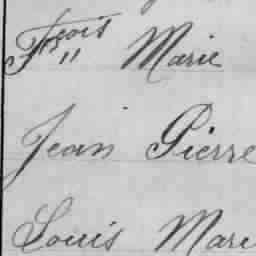 Fçois Marie
Jean Pierre
Louis Marie